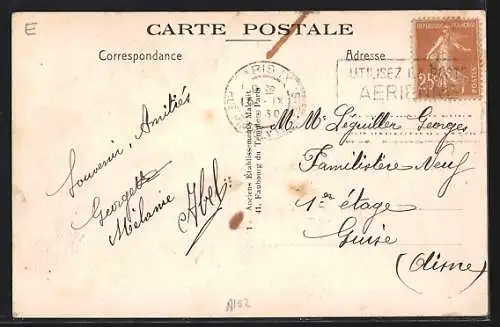 E
CARTE POSTALE
Correspondance
Adresse
PARIS
IX
30
UTILISEZ LA POSTE
AERIE
25
POSTES
Souvenir, Amitiés
Georgette
Mélanie
Abel
1 - Anciens Établissements Malcuit
41, Faubourg du Temple, Paris
M. Me Léguiller Georges
Familistère Neuf
1er étage
Guise
(Aisne)
A102